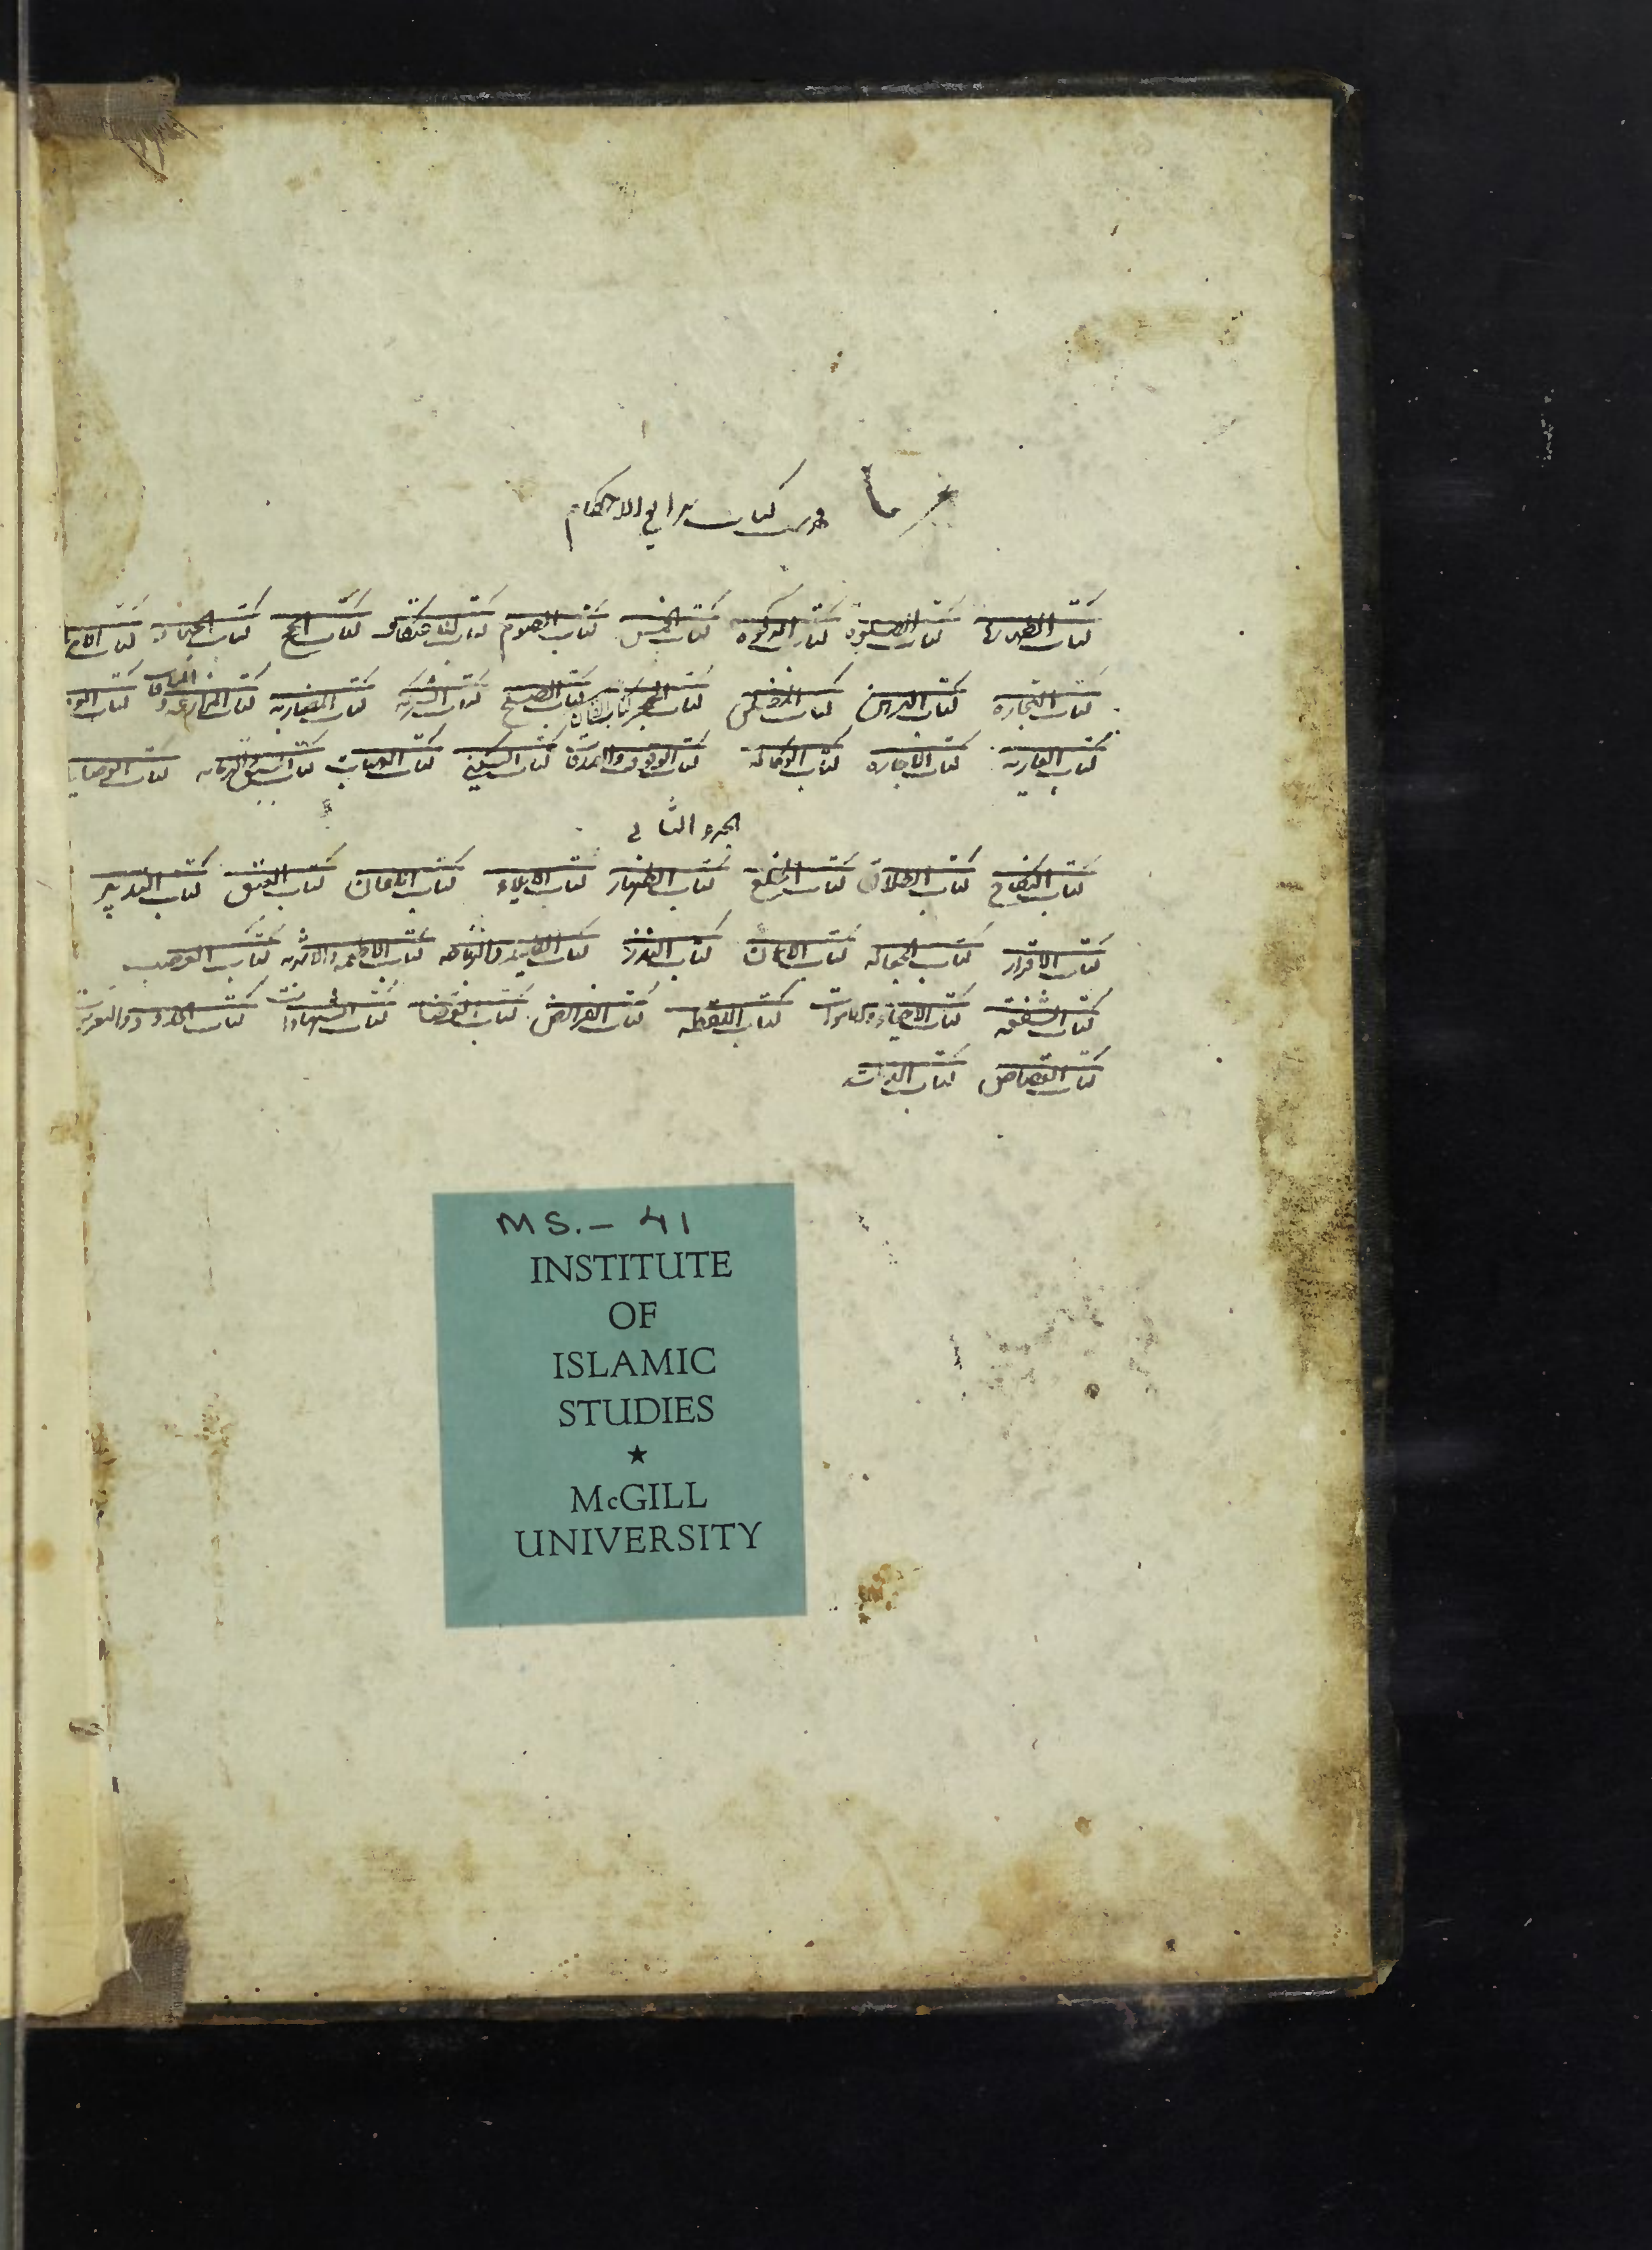 فهرست كتاب شرايع الاحكام
كتاب الطهارة كتاب الصلوة كتاب الزكوة كتاب الخمس كتاب الصوم كتاب الاعتكاف كتاب الحج كتاب الجهاد كتاب الامر
كتاب التجارة كتاب الرهن كتاب المفلس كتاب الحجر كتاب الضمان كتاب الصلح كتاب الشركة كتاب المضاربه كتاب المزارعة و المساقا كتاب الود
كتاب العاريه كتاب الاجاره كتاب الوكالة كتاب الوقوف والصدقات كتاب السكنى كتاب الهبات كتاب السبق والرمايه كتاب الوصايا
الجزو الثانى
كتاب النكاح كتاب الطلاق كتاب الخلع كتاب الظهار كتاب الايلاء كتاب اللعان كتاب العتق كتاب التدبير
كتاب الاقرار كتاب الجعاله كتاب الايمان كتاب النذر كتاب الصيد والذباحه كتاب الاطعمه والاشربه كتاب الغصب
كتاب الشفعه كتاب الاحياء والموات كتاب اللقطه كتاب الفرائض كتاب القضا كتاب الشهادات كتاب الحدود والتعزيرات
كتاب القصاص كتاب الديات
MS. – 41
INSTITUTE
OF
ISLAMIC
STUDIES
★
McGILL
UNIVERSITY